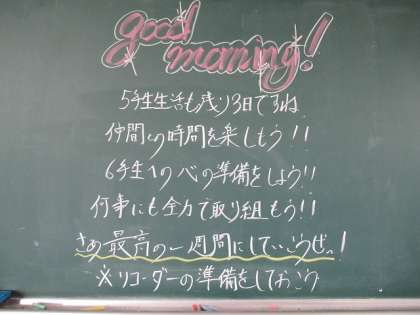 good
morning!
5年生生活も残り3日ですね
仲間との時間を楽しもう!!
6年生への心の準備をしよう!!
何事にも全力で取り組もう!!
さあ最高の一週間にしていこうぜっ!
※リコーダーの準備をしておこう